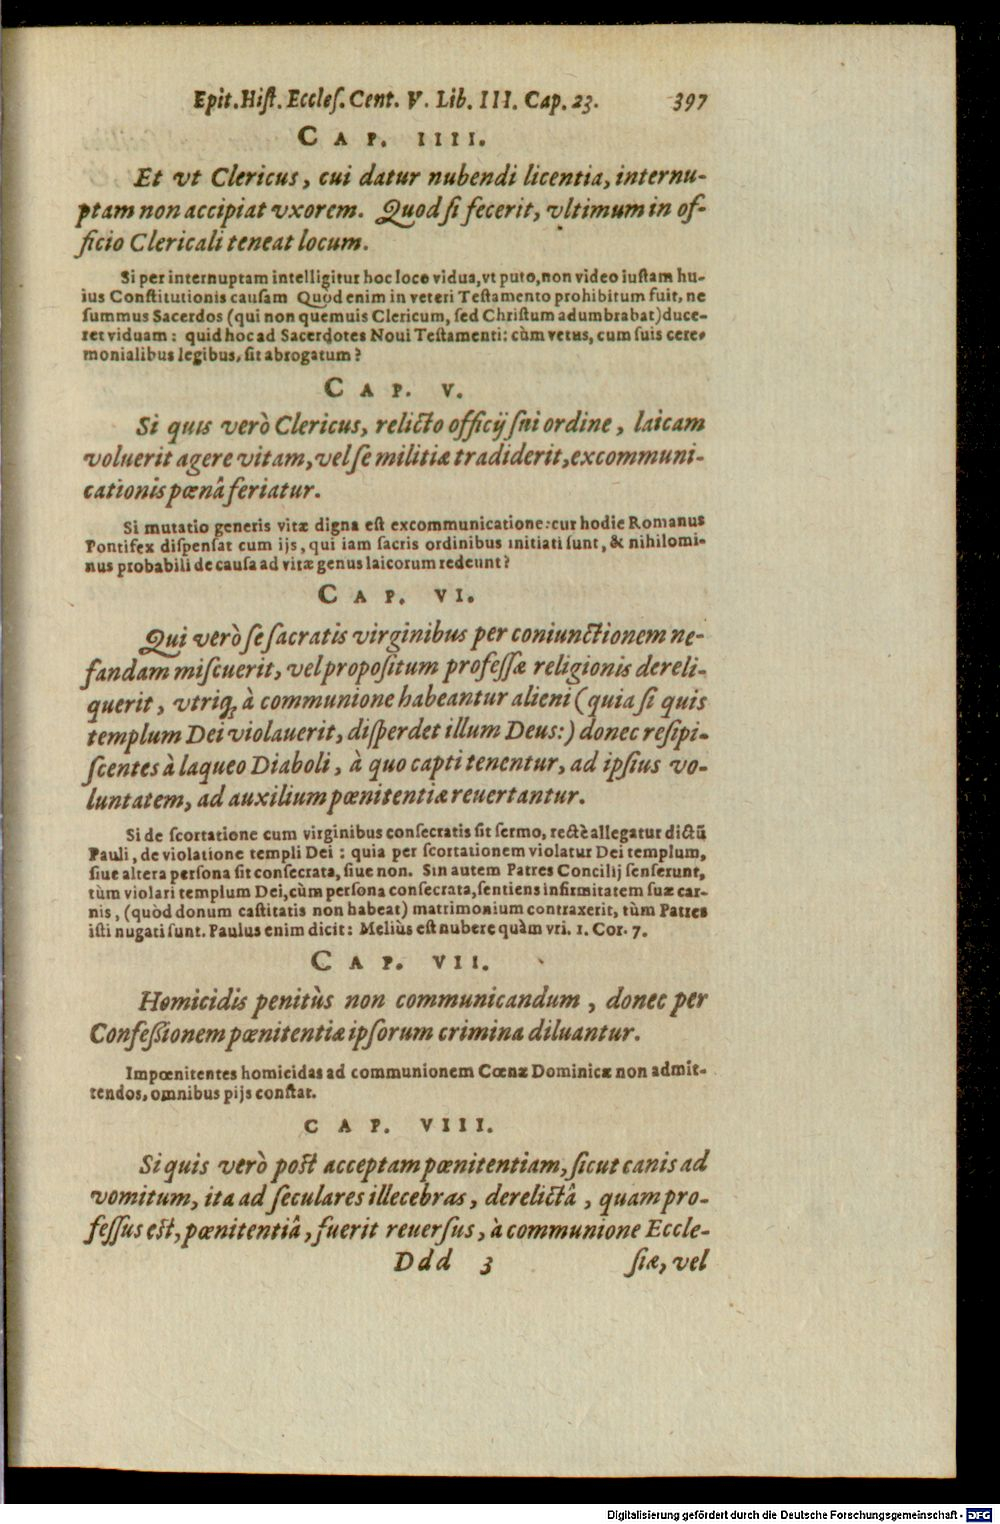 Epit. Hiſt. Eccleſ. Cent. V. Lib. III. Cap. 23. 397
CAP. IIII.
Et vt Clericus, cui datur nubendi licentia, internu-
ptam non accipiat vxorem. Quod ſi fecerit, vltimum in of-
ficio Clericali teneat locum.
Si per internuptam intelligitur hoc loco vidua, vt puto, non video iuſtam hu-
ius Conſtitutionis cauſam Quod enim in veteri Teſtamento prohibitum fuit, ne
ſummus Sacerdos (qui non quemuis Clericum, ſed Chriſtum adumbrabat) duce-
ret viduam: quid hoc ad Sacerdotes Noui Teſtamenti: cùm vetus, cum ſuis cere-
monialibus legibus, ſit abrogatum?
CAP. V.
Si quis verò Clericus, relicto officij ſui ordine, laicam
voluerit agere vitam, vel ſe militiæ tradiderit, excommuni-
cationis pœnâ feriatur.
Si mutatio generis vitæ digna eſt excommunicatione: cur hodie Romanus
Pontifex diſpenſat cum ijs, qui iam ſacris ordinibus initiati ſunt, & nihilomi-
nus probabili de cauſa ad vitæ genus laicorum redeunt?
CAP. VI.
Qui verò ſe ſacratis virginibus per coniunctionem ne-
fandam miſcuerit, vel propoſitum profeſſæ religionis dereli-
querit, vtriq; à communione habeantur alieni (quia ſi quis
templum Dei violauerit, diſperdet illum Deus:) donec reſipi-
ſcentes à laqueo Diaboli, à quo capti tenentur, ad ipſius vo-
luntatem, ad auxilium pœnitentiæ reuertantur.
Si de ſcortatione cum virginibus conſecratis ſit ſermo, rectè allegatur dictũ
Pauli, de violatione templi Dei: quia per ſcortationem violatur Dei templum,
ſiue altera perſona ſit conſecrata, ſiue non. Sin autem Patres Concilij ſenſerunt,
tùm violari templum Dei, cùm perſona conſecrata, ſentiens infirmitatem ſuæ car-
nis, (quòd donum caſtitatis non habeat) matrimonium contraxerit, tùm Patres
iſti nugati ſunt. Paulus enim dicit: Meliùs eſt nubere quàm vri. 1. Cor. 7.
CAP. VII.
Homicidis penitùs non communicandum, donec per
Confeßionem pœnitentiæ ipſorum crimina diluantur.
Impœnitentes homicidas ad communionem Cœnæ Dominicæ non admit-
tendos, omnibus pijs conſtat.
CAP. VIII.
Si quis verò poſt acceptam pœnitentiam, ſicut canis ad
vomitum, ita ad ſeculares illecebras, derelictâ, quam pro-
feſſus eſt, pœnitentiâ, fuerit reuerſus, à communione Eccle-
Ddd 3 ſiæ, vel
Digitalisierung gefördert durch die Deutsche Forschungsgemeinschaft - DFG